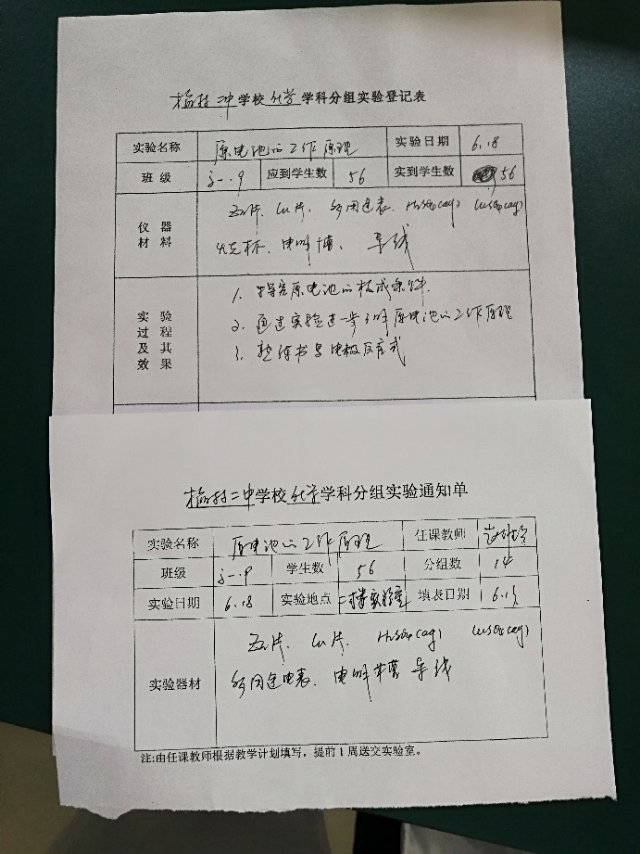 二中学校化学学科分组实验登记表
实验名称 原电池的工作原理 实验日期 6.18
班级 高一.9 应到学生数 56 实到学生数 56
仪器材料
Cu片、多用电表、H₂SO₄(aq) CuSO₄(aq)
导线
实验过程及其效果
1、探究原电池的构成条件.
2、通过实验进一步了解原电池的工作原理
3、熟练书写电极反应式
二中学校化学学科分组实验通知单
实验名称 原电池的工作原理 任课教师
班级 高一.9 学生数 56 分组数 14
实验日期 6.18 实验地点 二楼实验室 填表日期
实验器材
Cu片、H₂SO₄(aq) CuSO₄(aq)
多用途电表、导线
注:由任课教师根据教学计划填写，提前1周送交实验室。